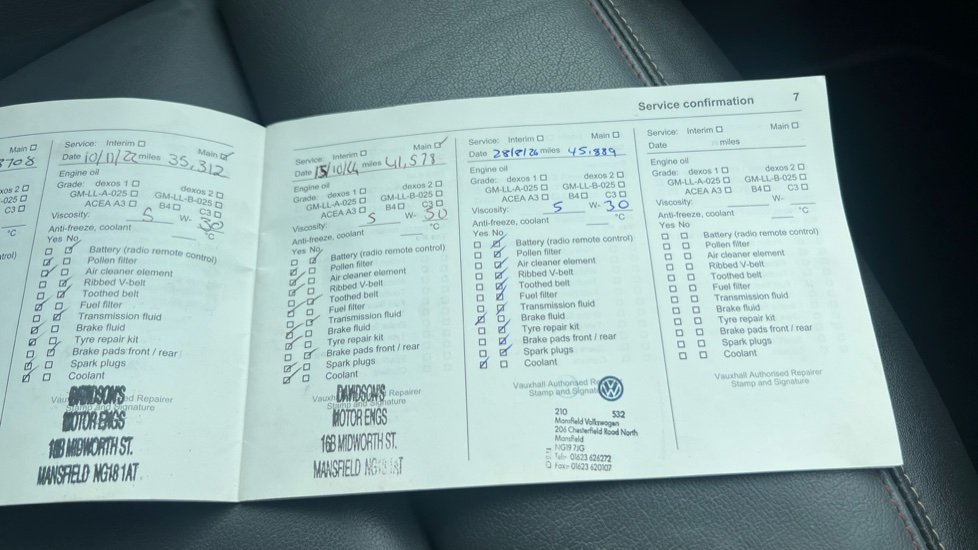 Service confirmation 7
Main
3708
xos 2
-025
C3
°C
trol)
Service: Interim Main
Date 10/11/22 miles 35,312
Engine oil
Grade: dexos 1 dexos 2
GM-LL-A-025 GM-LL-B-025
ACEA A3 B4 C3
Viscosity: 5 W- 30
Anti-freeze, coolant °C
Yes No
Battery (radio remote control)
Pollen filter
Air cleaner element
Ribbed V-belt
Toothed belt
Fuel filter
Transmission fluid
Brake fluid
Tyre repair kit
Brake pads front / rear
Spark plugs
Coolant
Vauxhall Authorised Repairer
Stamp and Signature
DAVIDSON'S
MOTOR ENGS
16B MIDWORTH ST.
MANSFIELD NG18 1AT
Service: Interim Main
Date 15/10/24 miles 41,578
Engine oil
Grade: dexos 1 dexos 2
GM-LL-A-025 GM-LL-B-025
ACEA A3 B4 C3
Viscosity: 5 W- 30
Anti-freeze, coolant °C
Yes No
Battery (radio remote control)
Pollen filter
Air cleaner element
Ribbed V-belt
Toothed belt
Fuel filter
Transmission fluid
Brake fluid
Tyre repair kit
Brake pads front / rear
Spark plugs
Coolant
Vauxhall Authorised Repairer
Stamp and Signature
DAVIDSON'S
MOTOR ENGS
16B MIDWORTH ST.
MANSFIELD NG18 1AT
Service: Interim Main
Date 28/8/26 miles 45,889
Engine oil
Grade: dexos 1 dexos 2
GM-LL-A-025 GM-LL-B-025
ACEA A3 B4 C3
Viscosity: 5 W- 30
Anti-freeze, coolant °C
Yes No
Battery (radio remote control)
Pollen filter
Air cleaner element
Ribbed V-belt
Toothed belt
Fuel filter
Transmission fluid
Brake fluid
Tyre repair kit
Brake pads front / rear
Spark plugs
Coolant
Vauxhall Authorised Re
Stamp and Signatu
210 532
Mansfield Volkswagen
206 Chesterfield Road North
Mansfield
NG19 7JG
Tel:- 01623 626272
Fax:- 01623 620107
Service: Interim Main
Date miles
Engine oil
Grade: dexos 1 dexos 2
GM-LL-A-025 GM-LL-B-025
ACEA A3 B4 C3
Viscosity: W-
Anti-freeze, coolant °C
Yes No
Battery (radio remote control)
Pollen filter
Air cleaner element
Ribbed V-belt
Toothed belt
Fuel filter
Transmission fluid
Brake fluid
Tyre repair kit
Brake pads front / rear
Spark plugs
Coolant
Vauxhall Authorised Repairer
Stamp and Signature